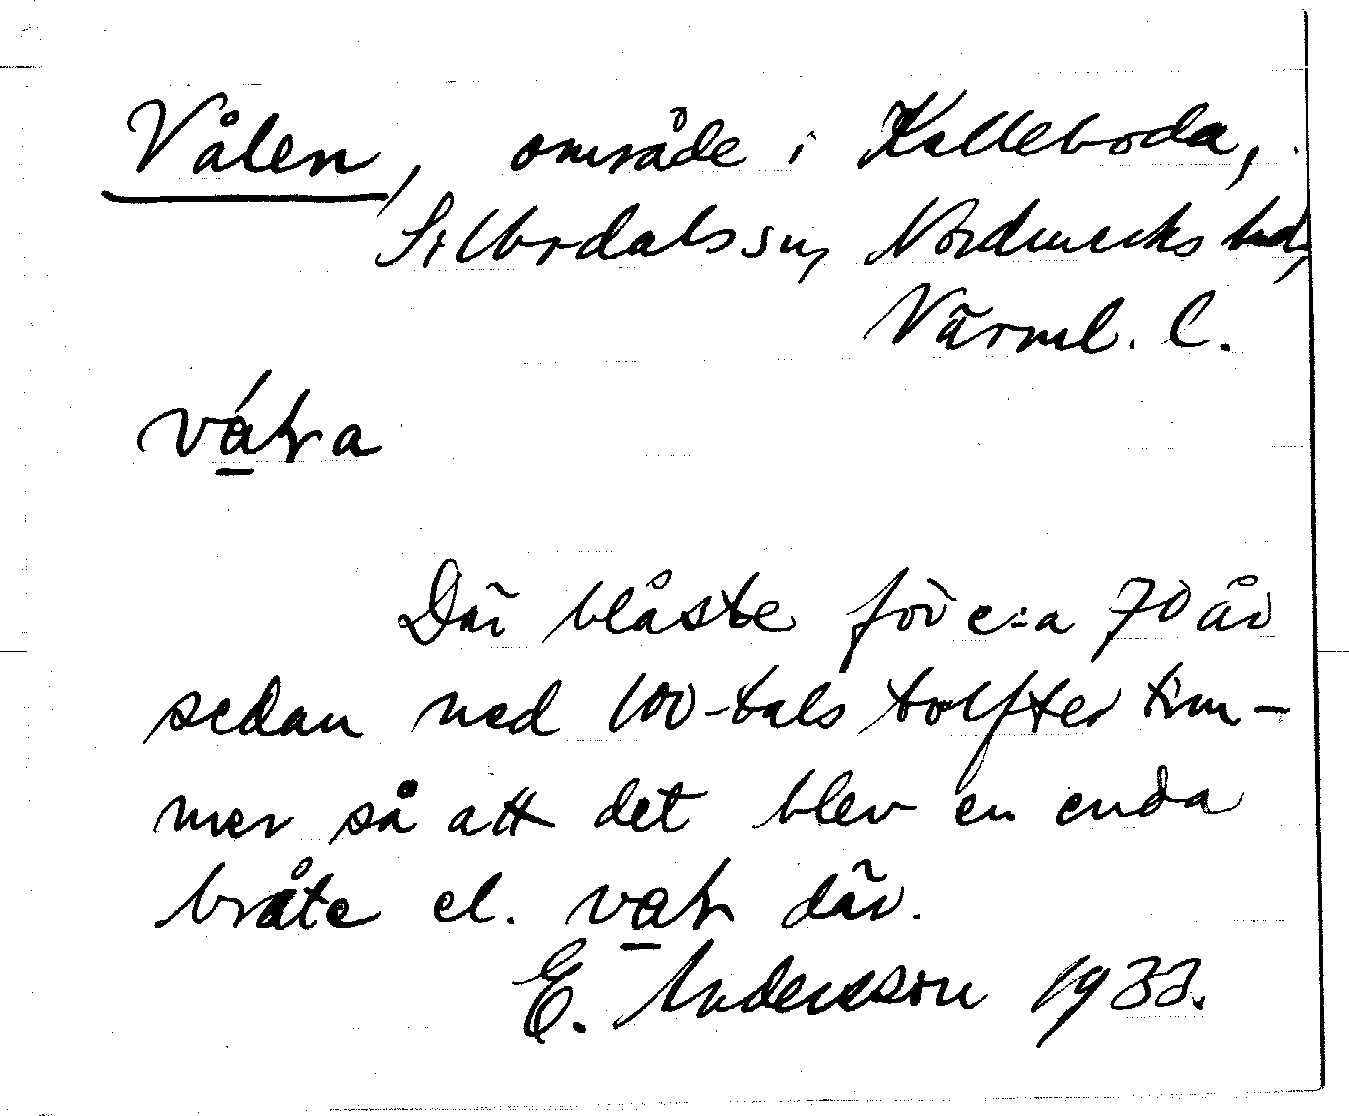 Vålen, område i Kalleboda,
Silbodals sn, Nordmarks hd,
Värml. l.
Där blåste för c:a 70 år
sedan ned 100-tals tolfter tim-
mer så att det blev en enda
bråte el. där.
E. Andersson 1933.